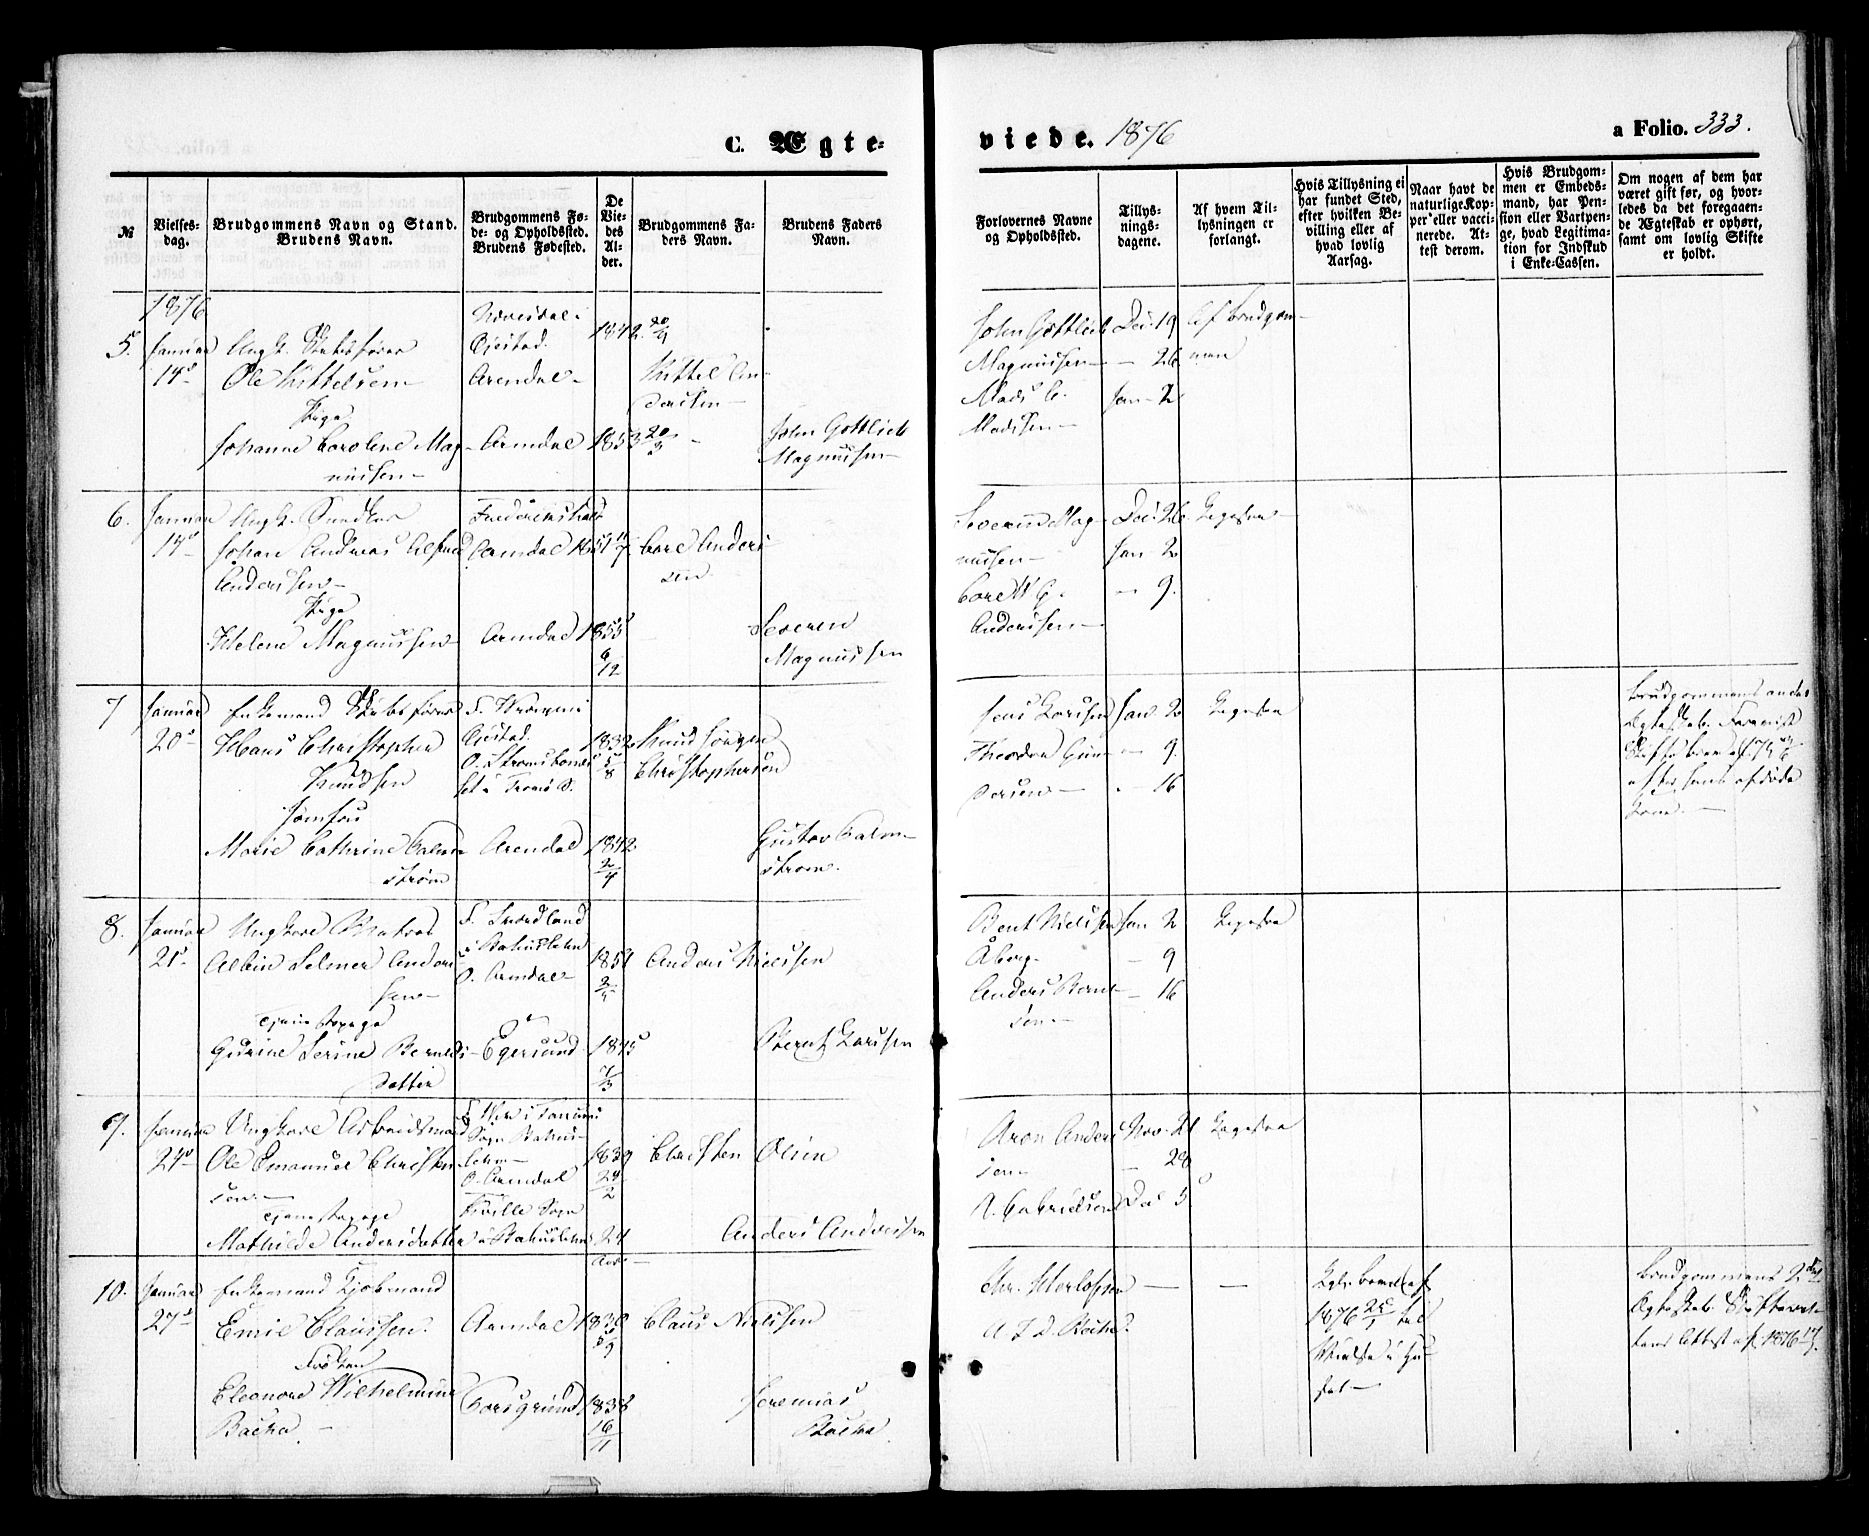 C. Ægte-
viede. 1876
a Folio. 333.
№
Vielses-
dag.
Brudgommens Navn og Stand.
Brudens Navn.
Brudgommens Fø-
de- og Opholdssted.
Brudens Fødested.
De
Vie-
des
Al-
der.
Brudgommens Fa-
ders Navn.
Brudens Faders
Navn.
Forlovernes Navne
og Opholdssted.
Tillys-
nings-
dagene.
Af hvem Til-
lysningen er
forlangt.
Hvis Tillysning ei
har fundet Sted,
efter hvilken Be-
villing eller af
hvad lovlig
Aarsag.
Naar havt de
naturlige Kop-
per eller vacci-
nerede. At-
test derom.
Hvis Brudgom-
men er Embeds-
mand, har Pen-
sion eller Vartpen-
ge, hvad Legitima-
tion for Indskud
i Enke-Cassen.
Om nogen af dem har
været gift før, og hvor-
ledes da det foregaaen-
de Ægteskab er ophørt,
samt om lovlig Skifte
er holdt.
1876
5. Januar
14d
Ungk. Skibsfører
Ole Kittelsen
Pige
Johanne Caroline Mag-
nussen
Øiestad.
Arendal
Arendal
1842 20/9
1853 20/3
Kittel An-
dersen
John Gottlieb
Magnussen
John Gottlieb
Magnussen
Mads C.
Madsen
Dec. 19
— 26
Jan. 2
Af Brudgom-
men
6. Januar
14d
Ungk.
Johan Andreas Alfred
Andersen
Pige
Helene Magnussen
Frederikshald
Arendal
Arendal
1855
6/12
Carl Anders-
sen
Severin
Magnussen
Severin Mag-
nussen
Carl W G.
Andersen
Dec. 26
Jan 2
— 9.
Ligesaa
7 Januar
20d
Enkemand Skibsfører
Hans Christopher
Knudsen
Jomfru
Marie Cathrine Calm-
strøm
F. Tromø
Øiestad.
Arendal
1832
5/8
1842
2/4
Knud Jörgen
Christophersen
Gustav Calm-
strøm.
Jens Larsen
Theodor Gun-
dersen
Jan. 2
— 9.
— 16
Ligesaa
Brudgommens andet
Ægteskab.
efter hans afdøde
Kone.
8. Januar
21d
Ungkarl Matros
Albin Selmer Anders-
sen
Tjenestepige
Gurine Serine Bernts-
datter
i Bahuslehn
O. Arendal
Egersund
1851
1845
7/3
Anders Nielsen
Bernt Larsen
Bent Nielsen
Åberg
Anders Bernt-
sen
Jan 2
— 9
— 16
Ligesaa
9. Januar
24d
Ungkarl Arbeidsmand
Ole Emanuel Christen-
sen
Tjenestepige
Mathilde Andersdatter
Sogn Bahus-
lehn
O. Arendal
Sogn
i Bahuslehn
1839
24/2
24
Aar
Christen Olsen
Anders Andersen
Aron Anders-
sen
A. Gabrielsen
Nov. 21
— 28
Dec 5
Ligesaa
10. Januar
27d
Enkemand Kjøbmand
Emil Claussen.
Frøken
Eleonore Wilhelmine
Backe
Arendal
Porsgrund
1838
16/11
Claus Nielsen
Jeremias
Backe
Chr. Herlofsen
A J D. Backe
Kgl. Bevill. af
1876 25/1 til
Vielse i Hu-
set
Brudgommens 2det
Ægteskab. Skifteret-
tens Attest af 1876